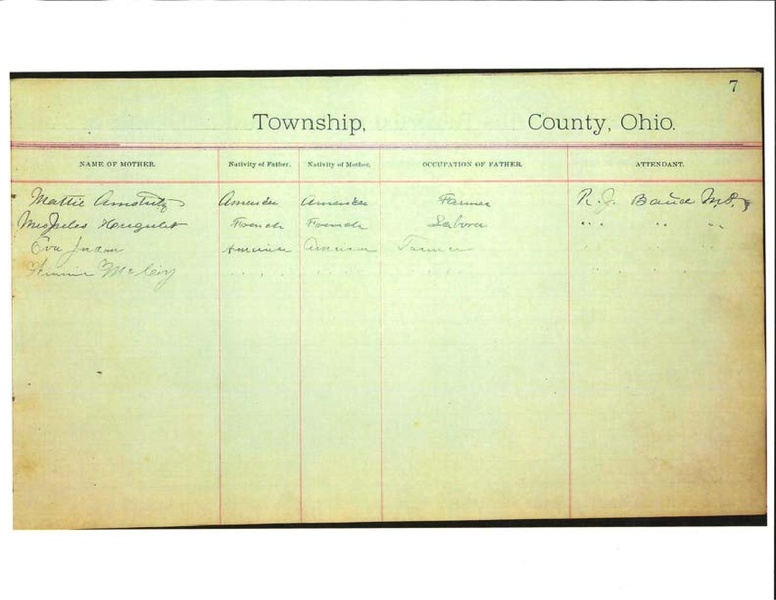 7
Township, County, Ohio.
NAME OF MOTHER. Nativity of Father. Nativity of Mother. OCCUPATION OF FATHER. ATTENDANT.
Mattie American American Farmer R. J. M.D.
Mrs Jules French French Labor " " "
Eva American American Farmer " " "
" " " "